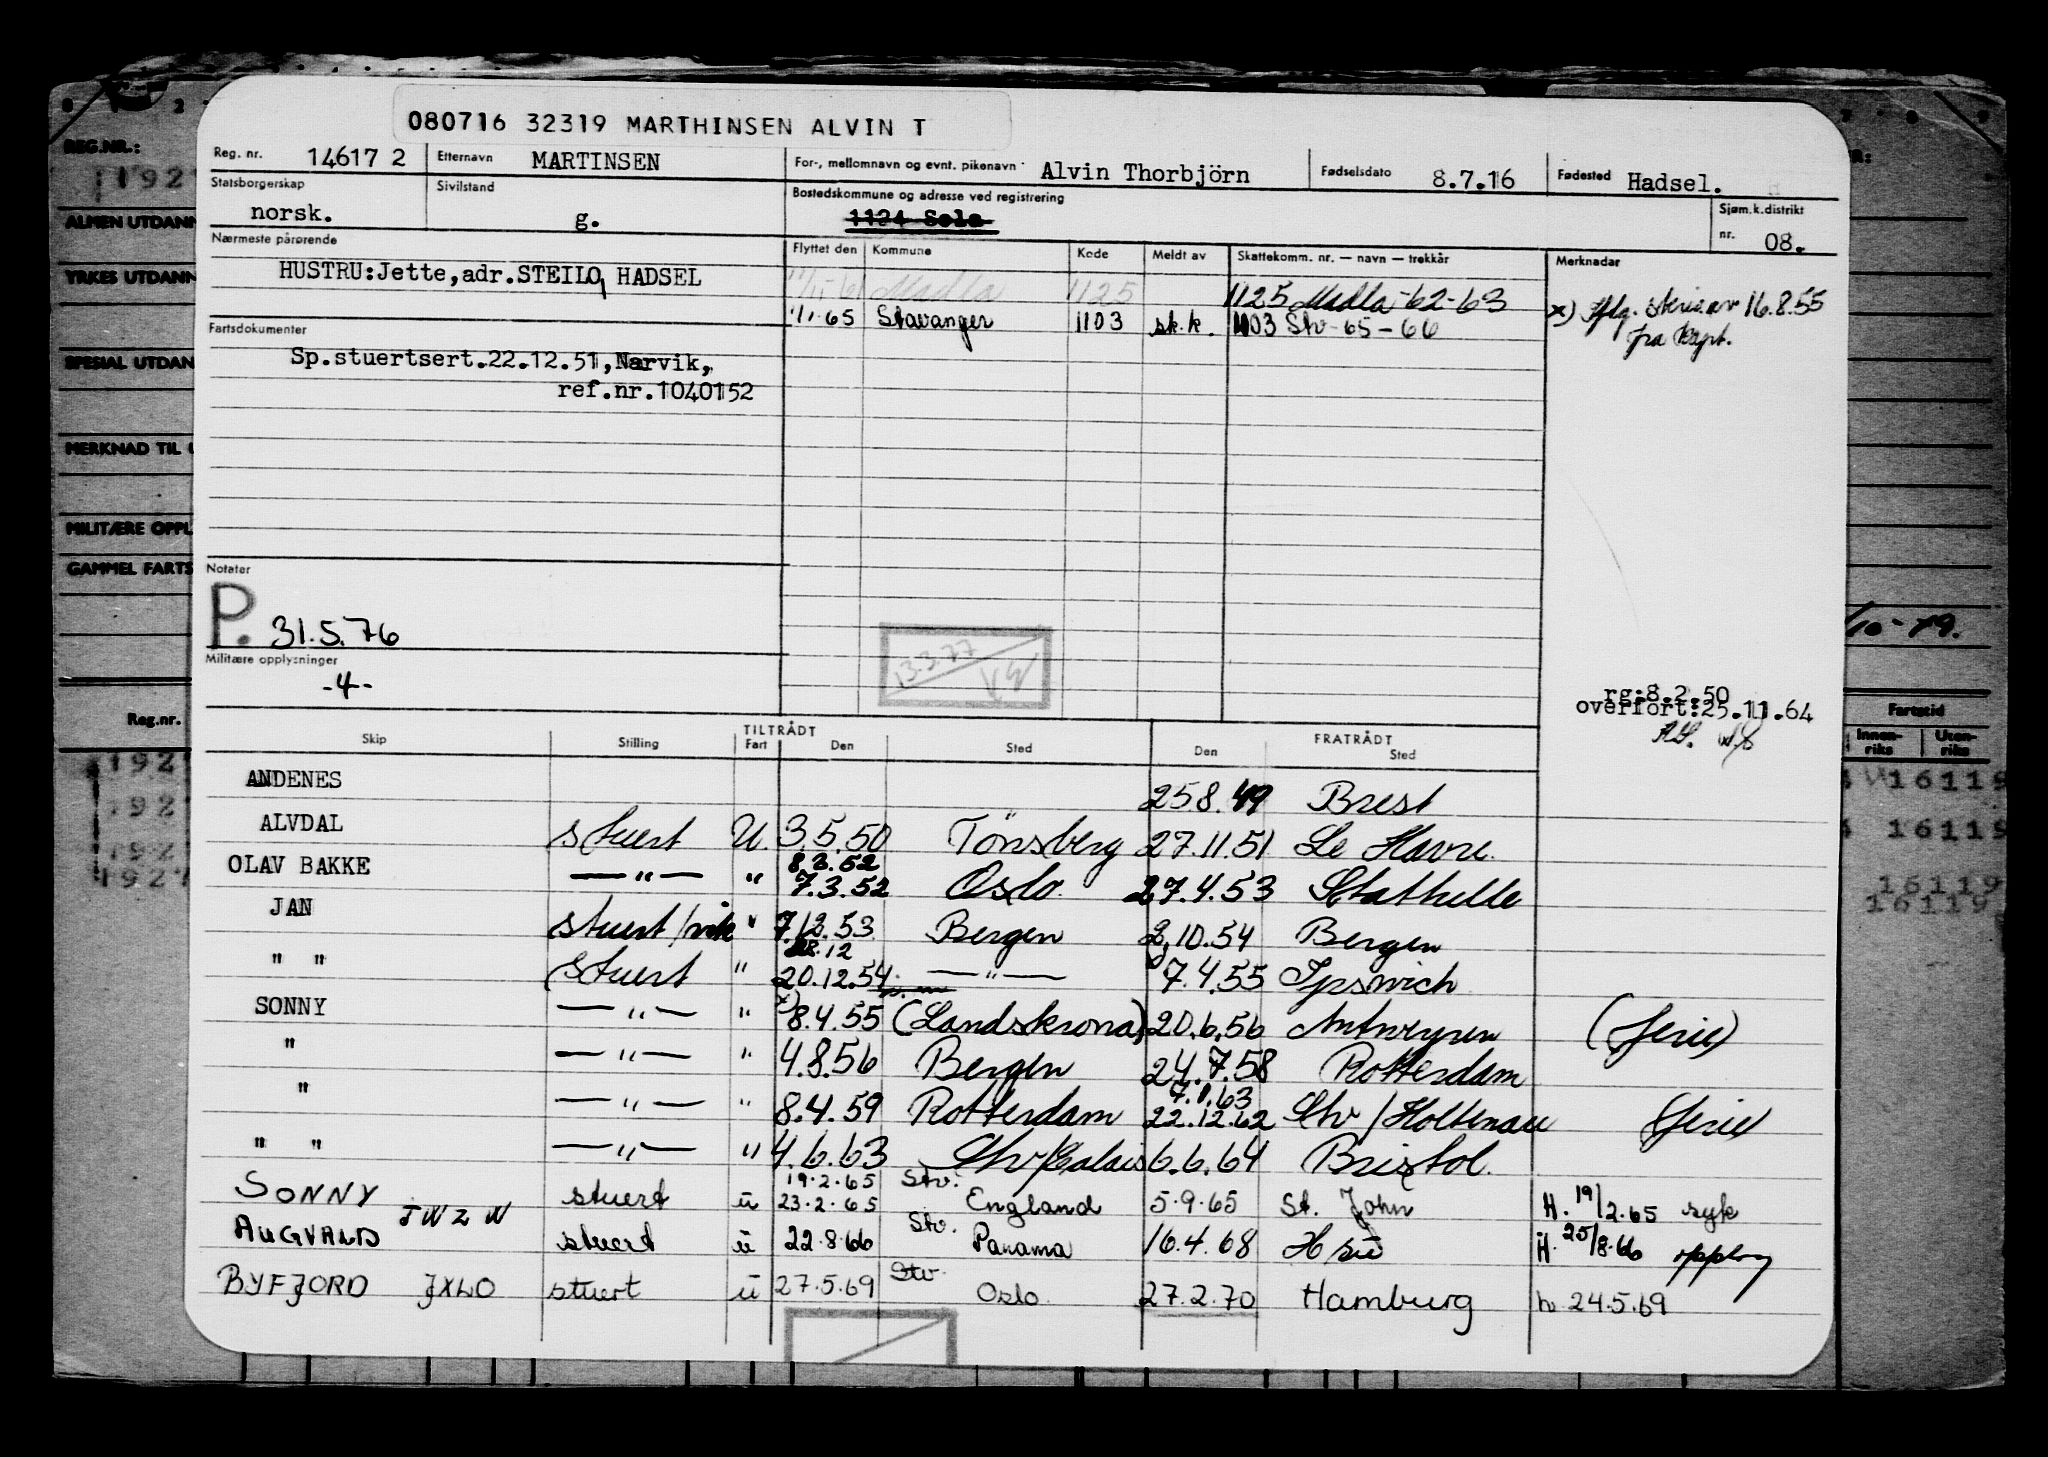 080716 32319 MARTHINSEN ALVIN T
Reg. nr. 14617 2 Etternavn MARTINSEN For-, mellomnavn og evnt. pikenavn Alvin Thorbjörn Fødselsdato 8.7.16 Fødested Hadsel.
Statsborgerskap norsk. Sivilstand g. Bostedskommune og adresse ved registrering 1124 Sola Sjøm.k.distrikt nr. 08.
Nærmeste pårørende Flyttet den Kommune Kode Meldt av Skattekomm. nr. — navn — trekkår Merknadar
HUSTRU:Jette,adr.STEILO, HADSEL Madla 1125 1125 Madla-62-63 x) 16.8.55
1/1-65 Stavanger 1103 sk.k. 1103 Stv-65-66 fra kapt.
Fartsdokumenter
Sp.stuertsert.22.12.51,Narvik,
ref.nr.1040152
Notater
P. 31.5.76
13.3.77
Militære opplysninger
-4-
rg:8.2.50
overført:25.11.64
Skip Stilling TILTRÅDT Fart Den Sted FRATRÅDT Den Sted
ANDENES 25.8.49 Brest
ALVDAL stuert U. 3.5.50 Tönsberg 27.11.51 Le Havre.
8.3.52
OLAV BAKKE —"— " 7.3.52 Oslo. 27.4.53 Stathelle
JAN stuert " 7/12.53 Bergen 2.10.54 Bergen
28.12
" " stuert " 20.12.54 —"— 7.4.55 Ipswich
SONNY —"— " x) 8.4.55 (Landskrona) 20.6.56 Antwerpen (ferie)
" —"— " 4.8.56 Bergen 24.7.58 Rotterdam
7.1.63
" —"— " 8.4.59 Rotterdam 22.12.62 Stv/Holtenau (ferie)
" " —"— " 4.6.63 Stv/Calais 6.6.64 Bristol.
19.2.65 Stv.
SONNY stuert ü 23.2.65 England 5.9.65 St. John H. 19/2.65 syk
AUGVALD JWZW stuert ü 22.8.66 Stv. Panama 16.4.68 H. 25/8.66
BYFJORD JXLO stuert ü 27.5.69 Stv. Oslo 27.2.70 Hamburg h. 24.5.69
REG.NR.:
ALMEN UTDANN
YRKES UTDANN
SPESIAL UTDAN
MERKNAD TIL
MILITÆRE OPPL
GAMMEL FARTS
Reg.nr.
10-79.
Fartstid
Innen-riks Uten-riks
16119
16119
16119
16119